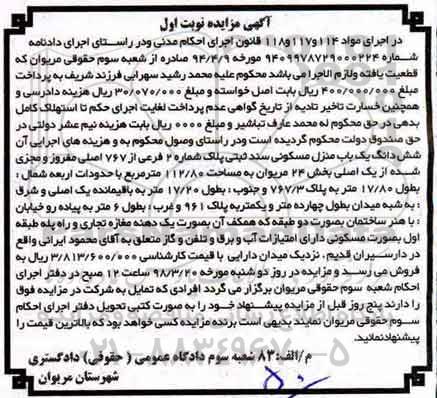 آگهی مزایده نوبت اول
در اجرای مواد ۱۱۴و۱۱۷و۱۱۸ قانون اجرای احکام مدنی ودر راستای اجرای دادنامه
شماره ۹۴۰۹۹۷۸۷۲۹۰۰۰۲۲۴ مورخه ۹۴/۴/۹ صادره از شعبه سوم حقوقی مریوان که
قطعیت یافته ولازم الاجرا می باشد محکوم علیه محمد رشید سهرابی فرزند شریف به پرداخت
مبلغ ۴۰۰/۰۰۰/۰۰۰ ریال بابت اصل خواسته و مبلغ ۳۰/۰۷۰/۰۰۰ ریال هزینه دادرسی و
همچنین خسارت تاخیر تادیه از تاریخ گواهی عدم پرداخت لغایت اجرای حکم تا استهلاک کامل
بدهی در حق محکوم له محمد عارف تباشیر و مبلغ ۰۰۰۰ ریال بابت هزینه نیم عشر دولتی در
حق صندوق دولت محکوم گردیده است ودر راستای وصول محکوم به و هزینه های اجرایی آن
ششدانگ یک باب منزل مسکونی سند ثبتی پلاک شماره ۲ فرعی از ۷۶۷ اصلی مفروز و مجزی
شده از یک اصلی بخش ۲۴ مریوان به مساحت ۱۱۲/۸۰ مترمربع با حدودات اربعه شمال :
بطول ۱۷/۸۰ متر به پلاک ۷۶۷/۳ و جنوب : بطول ۱۷/۲۰ متر به باقیمانده یک اصلی و شرق
: به شبه میدان بطول چهارده متر و یکمتربه پلاک ۹۶۱ و غرب : بطول ۶ متر به پیاده رو خیابان
: با هنر ساختمان بصورت دو طبقه که همکف آن بصورت یک دهنه مغازه تجاری و راه پله طبقه
اول بصورت مسکونی دارای امتیازات آب و برق و تلفن و گاز متعلق به آقای محمود ایرانی واقع
در دارسیران قدیم ، نزدیک میدان دارایی با قیمت کارشناسی ۳/۸۱۳/۶۰۰/۰۰۰ ریال به
فروش می رسد و مزایده در روز دو شنبه مورخه ۹۸/۳/۲۰ ساعت ۱۲ صبح در دفتر اجرای
احکام شعبه سوم حقوقی مریوان برگزار می گردد افرادی که تمایل به شرکت در مزایده فوق
را دارند پنج روز قبل از مزایده پیشنهاد خود را به صورت کتبی تحویل دفتر اجرای احکام
سوم حقوقی مریوان نمایند بدیهی است برنده مزایده کسی خواهد بود که بالاترین قیمت را
پیشنهادنمائید.
م/الف: ۸۳ شعبه سوم دادگاه عمومی ( حقوقی) دادگستری
شهرستان مریوان
۰۲۱-۸۸۳۴۹۶۷۰-۵